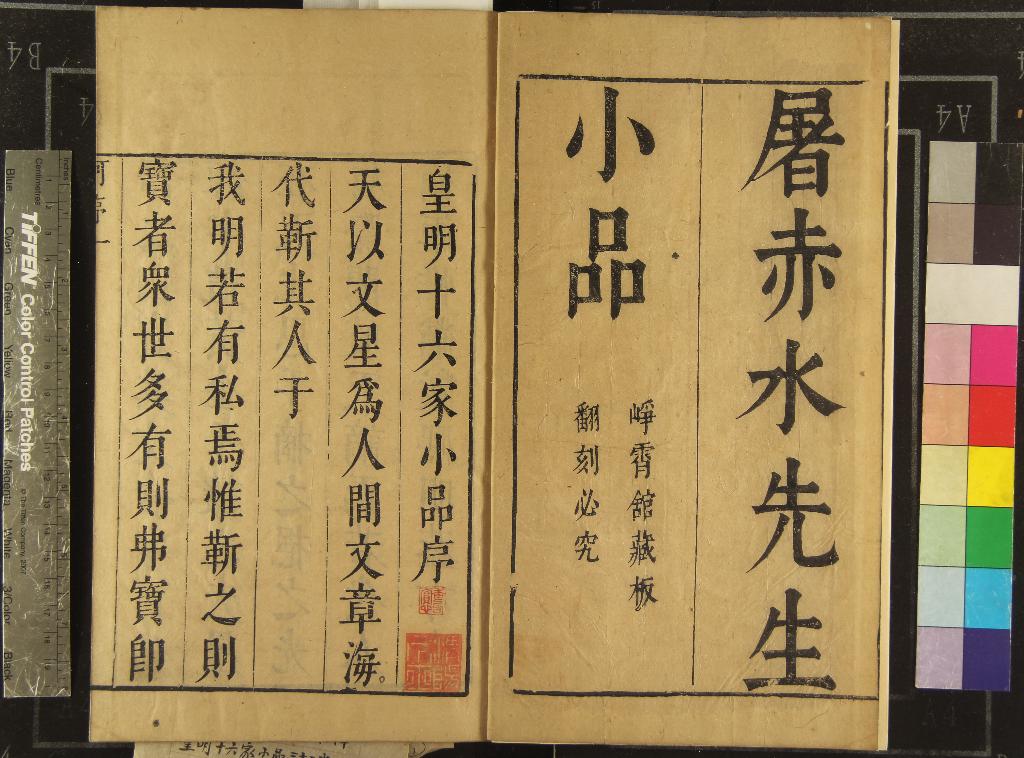 屠赤水先生
小品
崢霄館藏板
翻刻必究
皇明十六家小品序
天以文星爲人間文章海
代靳其人于
我明若有私焉惟靳之則
寶者衆世多有則弗寶卽
TIFFEN Color Control Patches
© The Tiffen Company, 2007
Inches
Centimetres
Blue Cyan Green Yellow Red Magenta White 3/Color Black
B4
A4